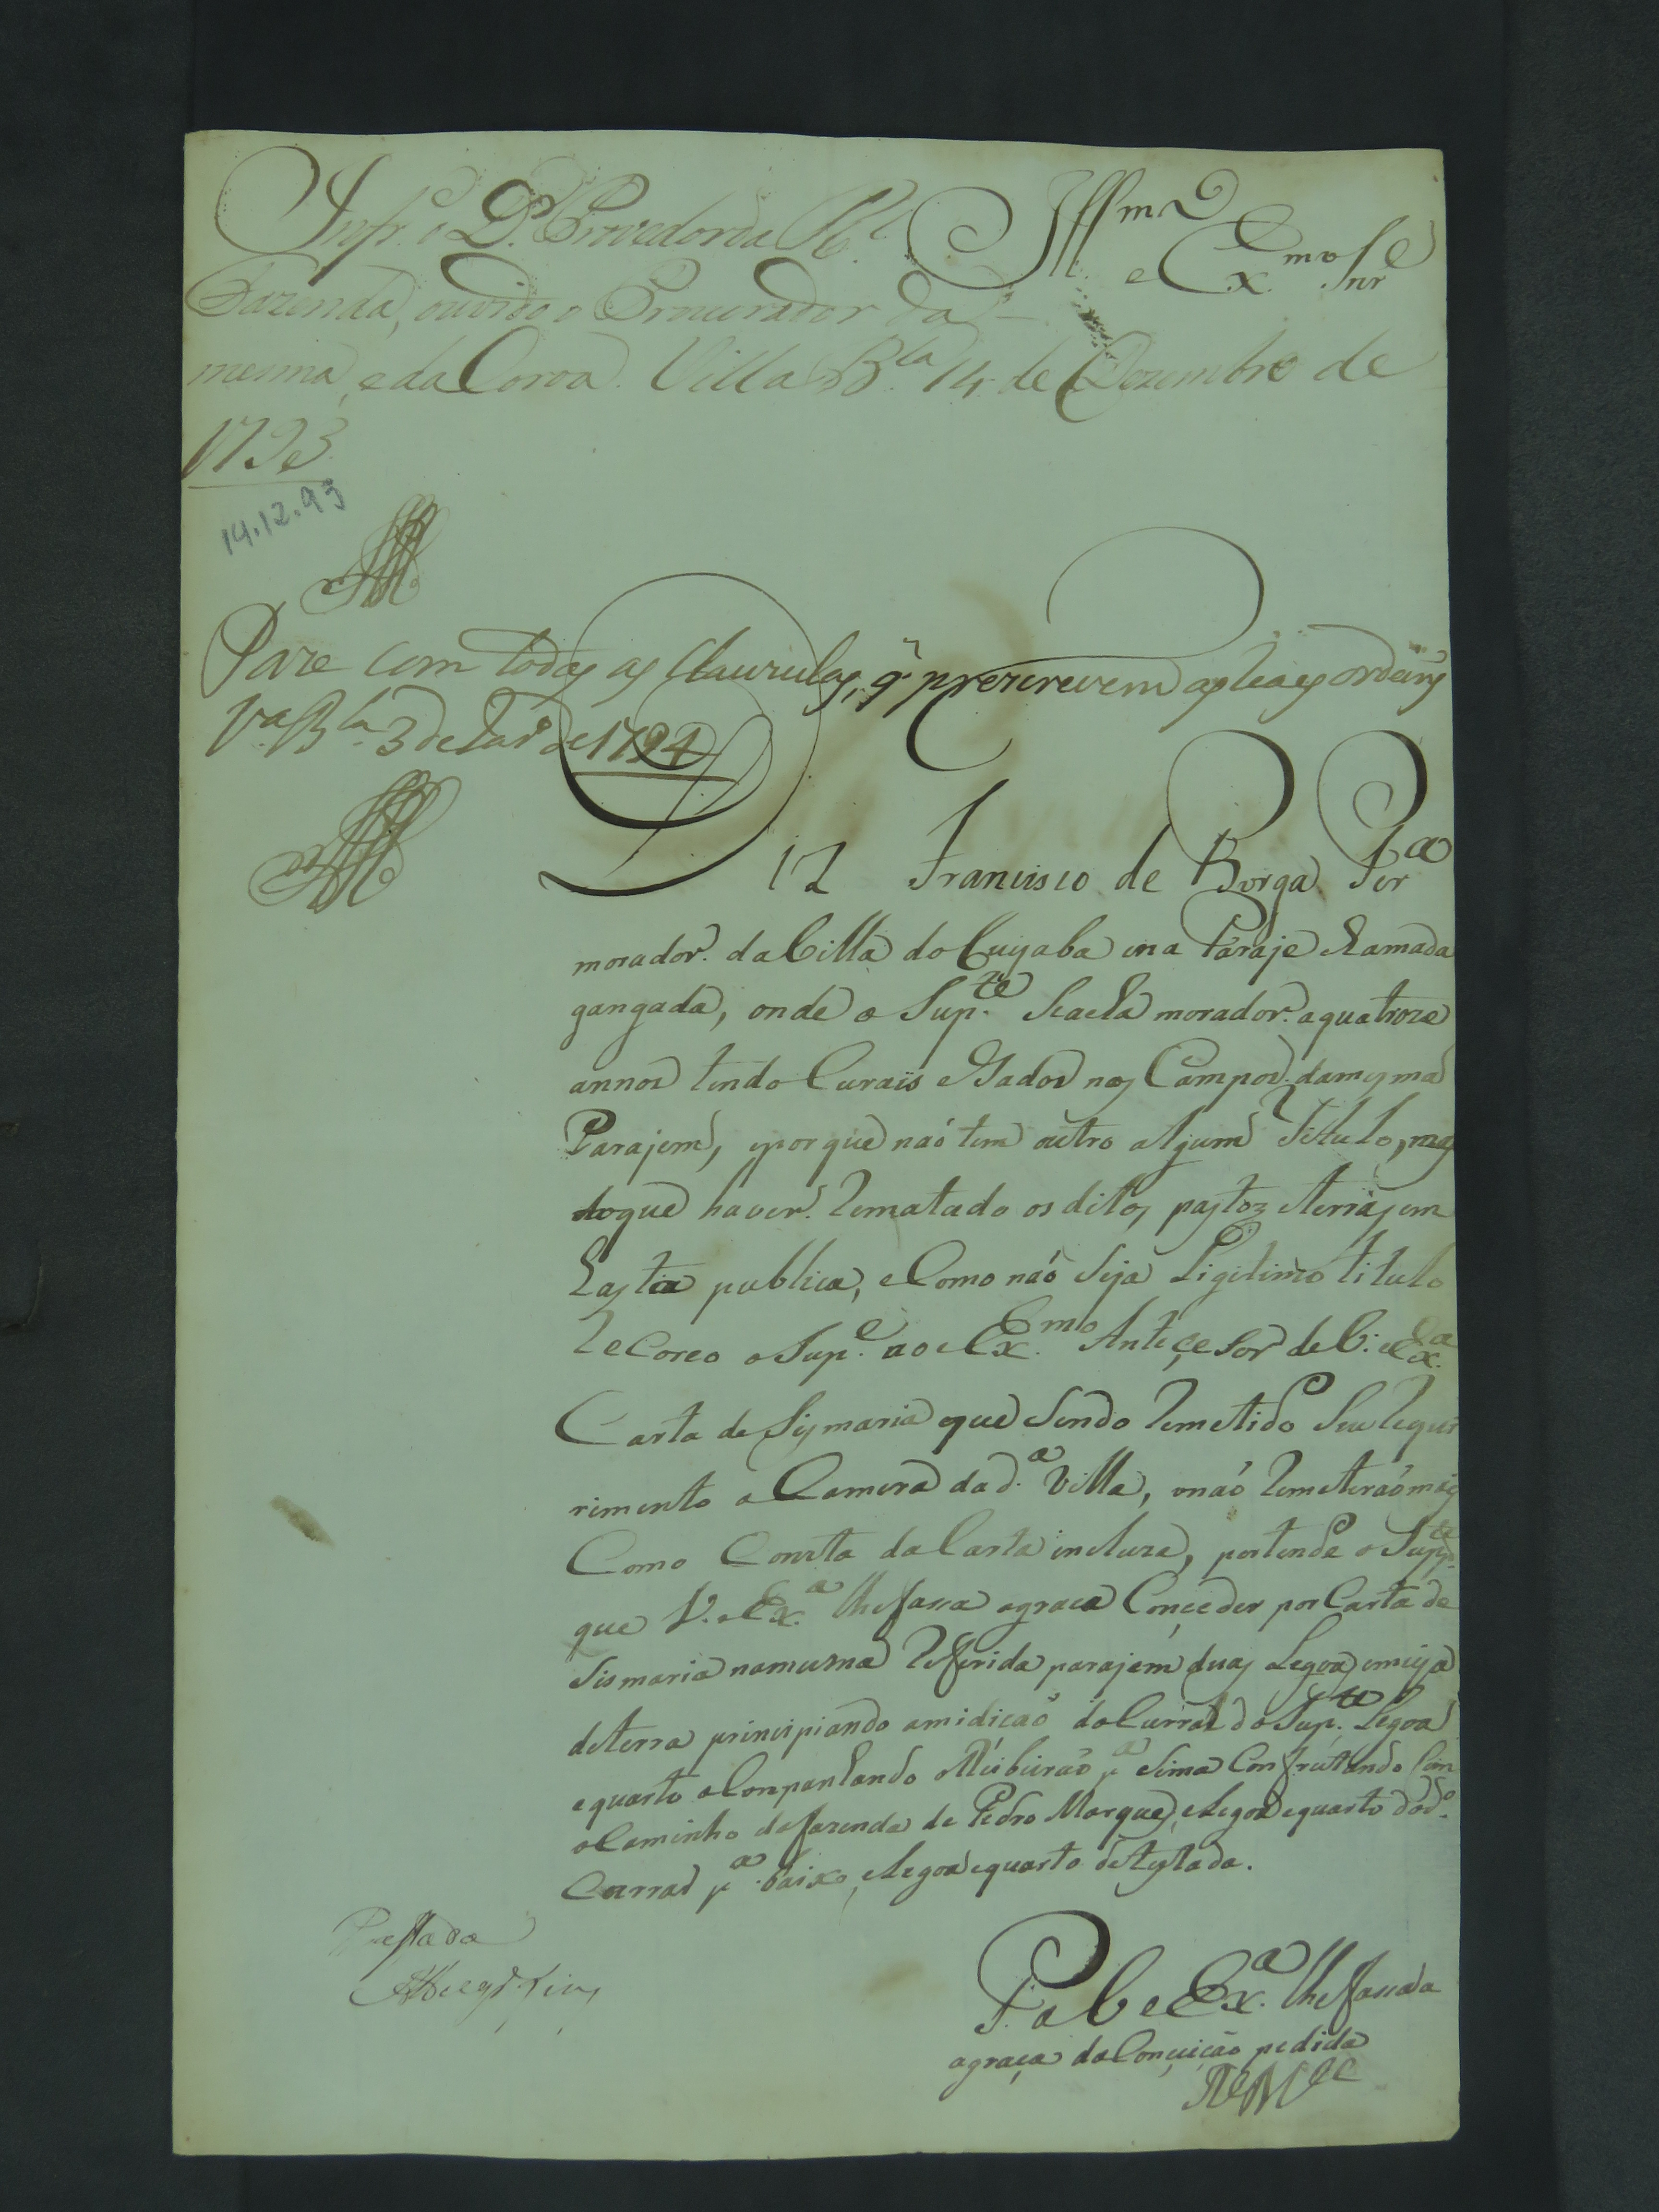 Illmo
e Exmo Snr
Infe o Dr Provedor da Rl
Fazenda, ouvido o Procurador da
mesma, e da Coroa. Villa Bla 14 de Dezembro de
1793
14.12.93
Pace com todas as Clauzulas, q prezcrevem as Reaes ordens
Va Bla 3 de Janro de 1794
Diz Francisco de Borga Pera
morador da Villa do Cuyaba ena Paraje xamada
gangada, onde o Supte se acha morador a quatroze
annos tendo Curais e Gados nos Campos da mesma
Parajem, eporque naó tem outro algum Titulo, mas
doque haver Rematado os ditos pastoz eterras em
Rasta publica, e Como naó seja Ligitimo titulo
Recoreo o Supe ao Exmo Anteçesor de V. Exa
Carta de Sismaria eque sendo Remetido seu Reque
rimento a Camera da da Villa, onaó Remeteraó mais
Como Consta da Carta incluza, pertende o Supte
que V. Exa lhe fassa agraça Conçeder por Carta de
Sismaria namesma Referida parajem duas Legoas emeya
deterra principiando amidicaó do Curral do Supte Legoa
equarto aConpanhando o Ribeiraó pa sima Confrutando Com
o Caminho dafazenda de Pedro Marques, eLegoa equarto do do
Currad pa baixo, eLegoa equarto detestada.
P. a V. Exa lhe fassa a
agraça da Conçeição pedida
ERMce